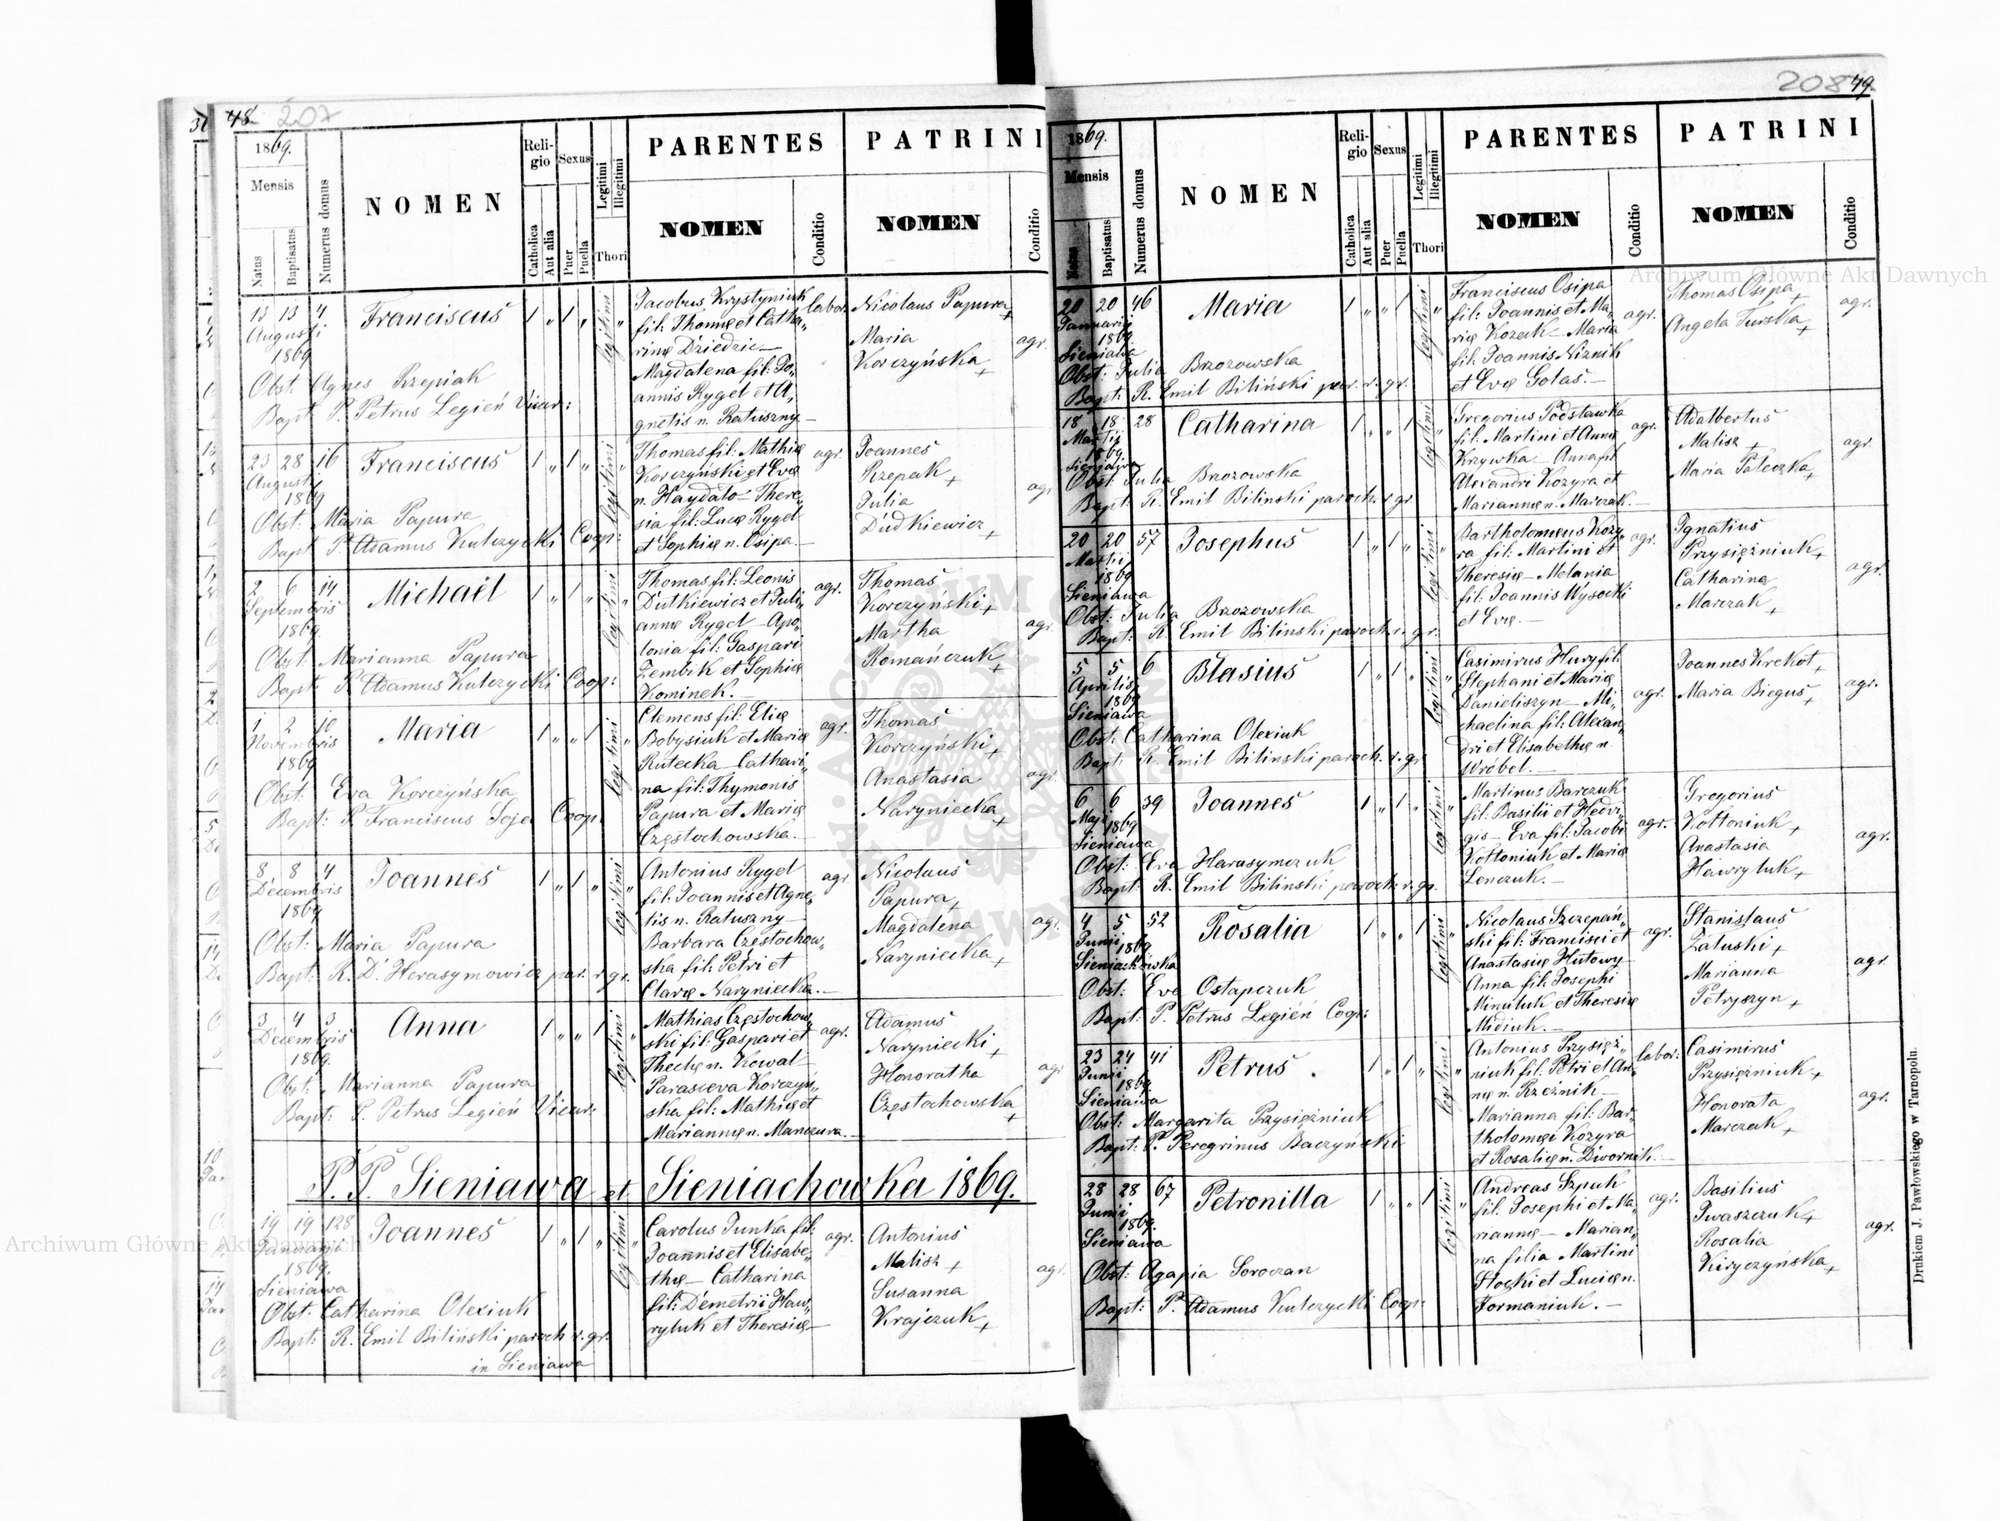 48. 207
1869.
Mensis
Natus
Baptisatus
Numerus domus
NOMEN
Religio
Catholica
Aut alia
Sexus
Puer
Puella
Legitimi
Illegitimi
Thori
PARENTES
NOMEN
Conditio
PATRINI
NOMEN
Conditio
13 13 4
Augusti
1869
Franciscus
1 „ 1 „
legitimi
Jacobus Krystyniuk
fil: Thomę et Catha„
rinę Dziedzic —
Magdalena fil: Jo„
annis Rygel et A„
gnetis n. Ratuszny —
labor.
Nicolaus Papura +
Maria
Korczyńska +
agr.
Obst. Agnes Rzepiak
Bapt. P. Petrus Legień Vicar:
23 28 16
Augusti
1869
Franciscus
1 „ 1 „
legitimi
Thomas fil: Mathię
Korczyński et Evę
n. Haydało — There„
sia fil: Lucę Rygel
et Sophię n. Osipa. —
agr.
Joannes
Rzepak +
Julia
Dudkiewicz +
agr
Obst: Maria Papura
Bapt P. Adamus Kulczycki Coop:
2 6 14
Septembris
1869.
Michaël
1 „ 1 „
legitimi
Thomas fil: Leonis
Dutkiewicz et Juli„
annę Rygel — Apo„
lonia fil: Gaspari
Zembik et Sophię
Kominek. —
agr.
Thomas
Korczyński +
Martha
Romańczuk +
agr.
Obst: Marianna Papura
Bapt: P. Adamus Kulczycki Coop:
1 2 10
Novembris
1869
Maria
1 „ „ 1
legitimi
Clemens fil: Elię
Bobysiuk et Marię
Rutecka — Cathari„
na fil: Thymonis
Papura et Marię
Częstochowska. —
agr.
Thomas
Korczyński +
Anastasia
Naryniecka +
agr.
Obst: Eva Korczyńska
Bapt: P. Franciscus Soja Coop.
8 8 4
Decembris
1869
Joannes
1 „ 1 „
legitimi
Antonius Rygel
fil: Joannis et Agne„
tis n. Ratuszny —
Barbara Częstochow„
ska fil: Petri et
Clarę Naryniecka. —
agr.
Nicolaus
Papura +
Magdalena
Naryniecka +
agr.
Obst: Maria Papura
Bapt: R. D. Herasymowicz par. r. gr.
3 4 3
Decembris
1869.
Anna
1 „ „ 1
legitimi
Mathias Częstochow„
ski fil: Gaspari et
Theclę n. Kowal —
Parasceva Korczyń„
ska fil: Mathię et
Mariannę n. Manczura. —
agr.
Adamus
Naryniecki +
Honoratha
Częstochowska +
agr
Obst. Marianna Papura
Bapt: P. Petrus Legień Vicar:
P. P. Sieniawa et Sieniachowka 1869.
19 19 128
Januarii
1869.
Sieniawa
Joannes
1 „ 1 „
legitimi
Carolus Junka fil:
Joannis et Elisabe„
thę — Catharina
fil: Demetrii Haw„
ryluk et Theresię —
agr.
Antonius
Malisz +
Susanna
Krajczuk +
agr.
Obst. Catharina Olexiuk
Bapt: R. Emil Biliński paroch r. gr.
in Sieniawa
208 49.
1869.
Mensis
Natus
Baptisatus
Numerus domus
NOMEN
Religio
Catholica
Aut alia
Sexus
Puer
Puella
Legitimi
Illegitimi
Thori
PARENTES
NOMEN
Conditio
PATRINI
NOMEN
Conditio
20 20 46
Januarii
1869
Sieniawa
Maria
1 „ „ 1
legitimi
Franciscus Osipa
fil: Joannis et Ma„
rię Kozak — Maria
fil: Joannis Niznik
et Evę Gołas. —
agr.
Thomas Osipa +
Angela Turska +
agr.
Obst: Julia Brzozowska
Bapt: R. Emil Biliński par. r. gr.
18 18 28
Martii
1869
Sieniawa
Catharina
1 „ „ 1
legitimi
Gregorius Podstawka
fil: Martini et Annę
Krzywka — Anna fil
Alexandri Kozyra et
Mariannę n. Marczak. —
agr.
Adalbertus
Malisz +
Maria Pałeczka +
agr.
Obst Julia Brzozowska
Bapt: R. Emil Bilinski paroch. r. gr
20 20 57
Martii
1869
Sieniawa
Josephus
1 „ 1 „
legitimi
Bartholomęus Kozy„
ra fil: Martini et
Theresię — Melania
fil: Joannis Wysocki
et Evę. —
agr.
Ignatius
Przysiężniuk +
Catharina
Marczak +
agr.
Obst: Julia Brzozowska
Bapt: R. Emil Bilinski paroch. r. gr.
5 5 6
Aprilis
1869
Sieniawa
Błasius
1 „ 1 „
legitimi
Casimirus Hury fil:
Stephani et Marię
Danieliszyn — Mi„
chaelina fil: Alexan„
dri et Elisabethę n.
Wróbel. —
agr.
Joannes Krekot +
Maria Biegus +
agr.
Obst: Catharina Olexiuk
Bapt: R. Emil Bilinski paroch. r. gr
6 6 39
Maji
1869
Sieniawa
Joannes
1 „ 1 „
legitimi
Martinus Barczuk
fil: Basilii et Hedvi„
gis — Eva fil: Jacobi
Kołtoniuk et Marię
Lenczuk. —
agr.
Gregorius
Kołtoniuk +
Anastasia
Hawryluk +
agr.
Obst: Eva Harasymczuk
Bapt: R. Emil Bilinski paroch. r. gr.
4 5 52
Junii
1869
Sieniachówka
Rosalia
1 „ „ 1
legitimi
Nicolaus Szczepań„
ski fil: Francisci et
Anastasię Hutowy
Anna fil: Josephi
Minuluk et Theresię
Midiuk. —
agr.
Stanislaus
Załuski +
Marianna
Petryszyn +
agr.
Obst: Eva Ostapczuk
Bapt: P. Petrus Legień Coop:
23 24 41
Junii
1869
Sieniawa
Petrus
1 „ 1 „
legitimi
Antonius Przysięż„
niuk fil: Petri et An„
nę n. Rzeźnik —
Marianna fil: Bar„
tholomęi Kozyra
et Rosalię n. Dwornik. —
labor:
Casimirus
Przysiężniuk +
Honorata
Marczak +
agr.
Obst: Margarita Przysiężniuk
Bapt: P. Peregrinus Baczyński
28 28 67
Junii
1869.
Sieniawa
Petronilla
1 „ „ 1
legitimi
Andreas Szpuk
fil: Josephi et Ma„
riannę — Marian„
na filia Martini
Hocki et Lucię n.
Formaniuk. —
agr.
Basilius
Iwaszczuk +
Rosalia
Kiryczyńska +
agr.
Obst: Agapia Soroczan
Bapt: P. Adamus Kulczycki Coop:
Drukiem J. Pawłowskiego w Tarnopolu.
Archiwum Główne Akt Dawnych
Archiwum Główne Akt Dawnych